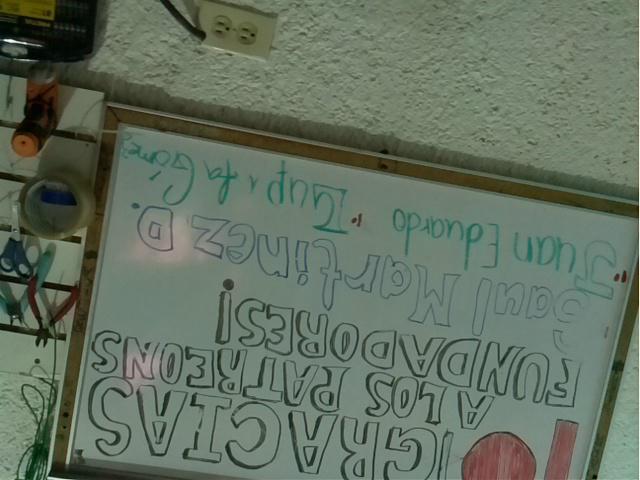 ¡GRACIAS
A LOS PATREONS
FUNDADORES!
Saul Martinez D.
"Juan Eduardo